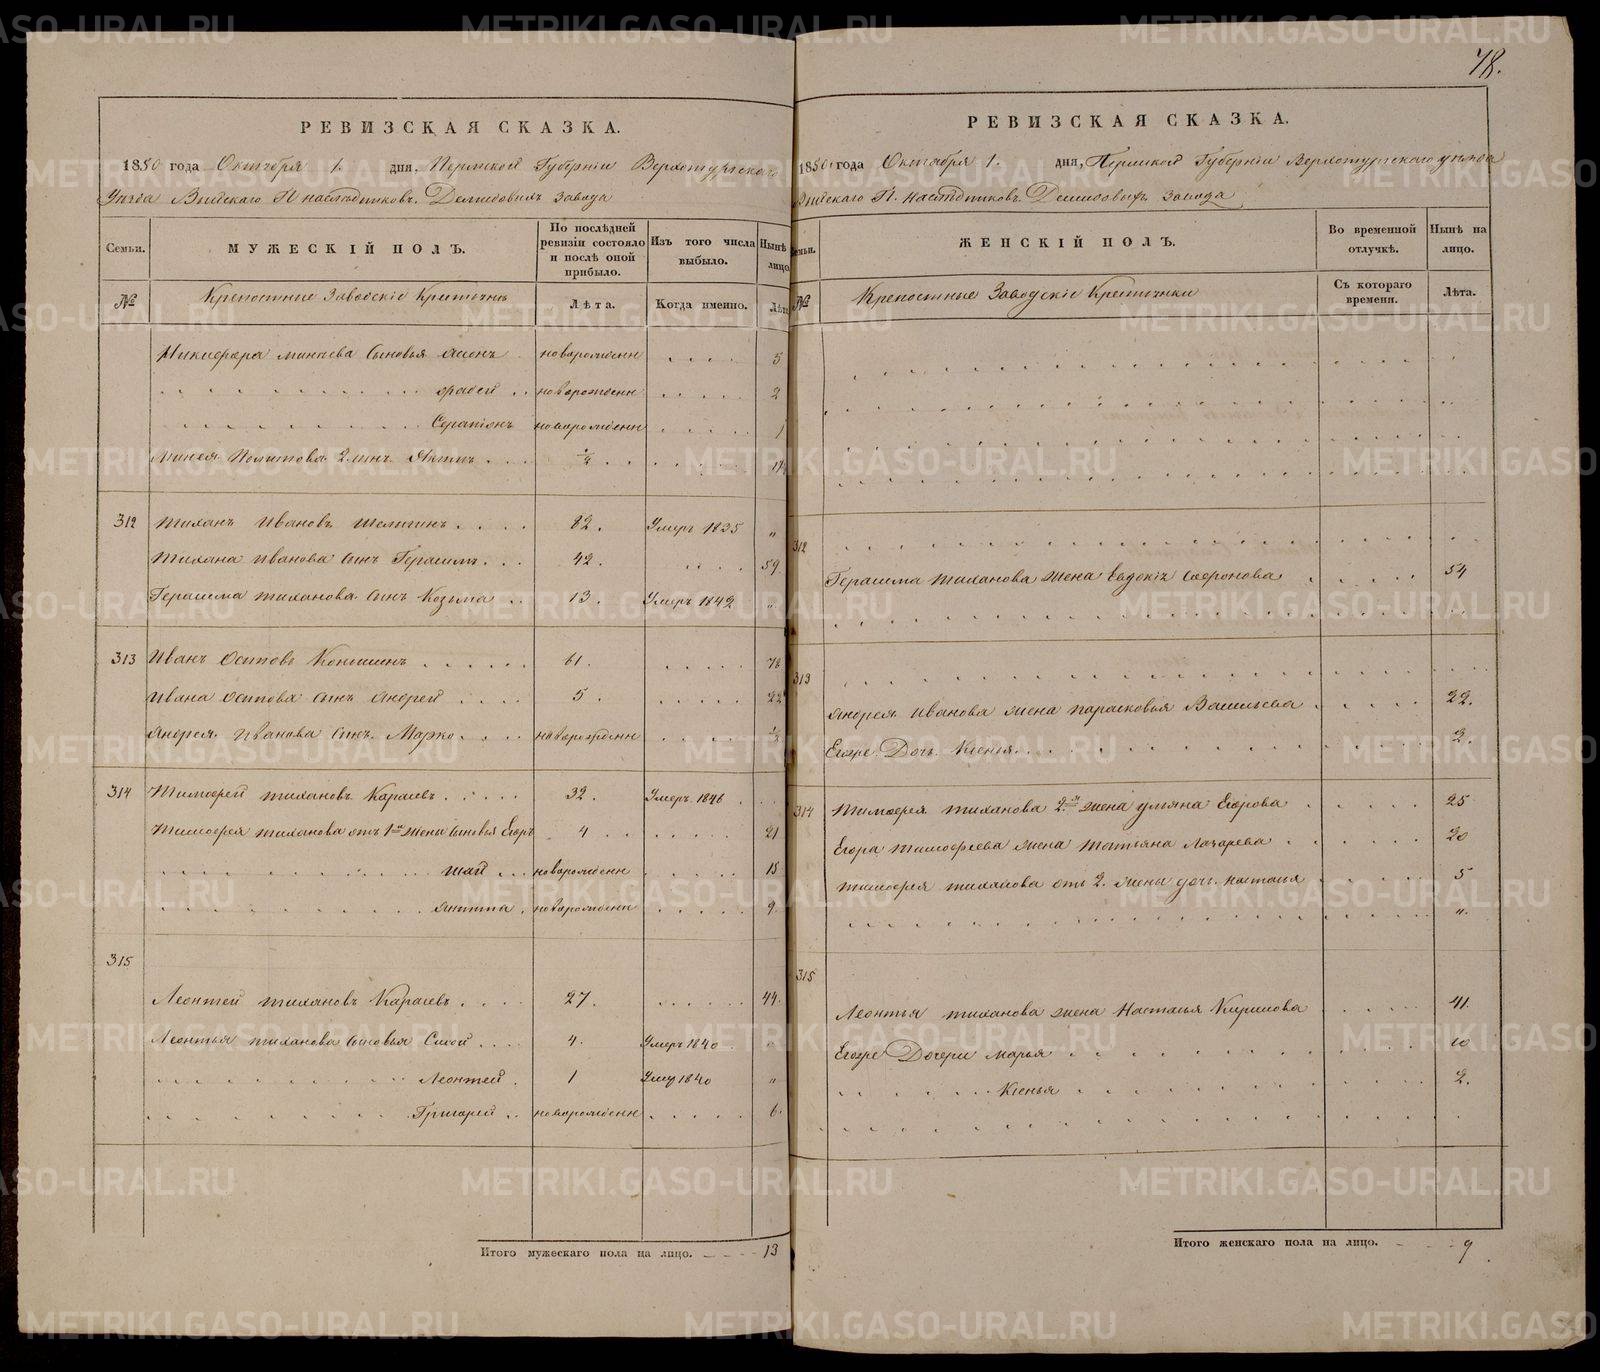 78.
РЕВИЗСКАЯ СКАЗКА.
1850 года Октября 1. дня, Пермской Губернiи Верхотурскаго
Уѣзда Выйскаго Н наслѣдниковъ Демидовыхъ Завода
Семьи.
МУЖЕСКIЙ ПОЛЪ.
По послѣдней ревизiи состояло и послѣ оной прибыло.
Изъ того числа выбыло.
Нынѣ лицо
№
Крепостные Заводскiе
Лѣта.
Когда именно.
Лѣта
Никифора Сыновья новорожденн 5
новорожденн 2
Серапiонъ новорожденн 1
2. сынъ
312 Тиханъ Ивановъ 82. Умеръ 1835 "
Тихана Иванова Сынъ Герасимъ 42. 59.
Герасима Тиханова Сынъ Козьма 13. Умеръ 1842 "
313 Иванъ Осиповъ 61. 78
Ивана Осипова Сынъ Андрей 5. 22
Андрея Иванова Сынъ Марко новорожденн ½
314 Тимофей Тихановъ Караевъ 32. Умеръ 1846
Тимофея Тиханова отъ 1й жены Сыновья Егоръ 4 21
новорожденн 15
Никита новорожденн 9.
315
Леонтей Тихановъ Караевъ 27. 44.
Леонтья Тиханова Сыновья 4. Умеръ 1840 "
Леонтей 1 Умеръ 1840 "
Григорей новорожденн 6.
Итого мужескаго пола на лицо. 13
РЕВИЗСКАЯ СКАЗКА.
1850 года Октября 1. дня, Пермской Губернiи Верхотурскаго уѣзда
Выйскаго Н. наслѣдниковъ Демидовыхъ Завода
Семьи.
ЖЕНСКIЙ ПОЛЪ.
Во временной отлучкѣ.
Нынѣ на лицо.
№
Крепостные Заводскiе
Съ котораго времени.
Лѣта.
312
Герасима Тиханова жена Евдокiя Софронова 54
313
Андрея Иванова жена Парасковья Васильева 22.
Егоже Дочь Ксенья 2.
314 Тимофея Тиханова 2я жена Ульяна Егорова 25
Егора Тимофеева жена Татьяна Лазарева 20
Тимофея Тиханова отъ 2. жены дочь Насталья 5
"
315
Леонтья Тиханова жена Насталья Кирилова 41.
Егоже Дочери Марья 10
Ксенья 2.
Итого женскаго пола на лицо. 9
METRIKI.GASO-URAL.RU